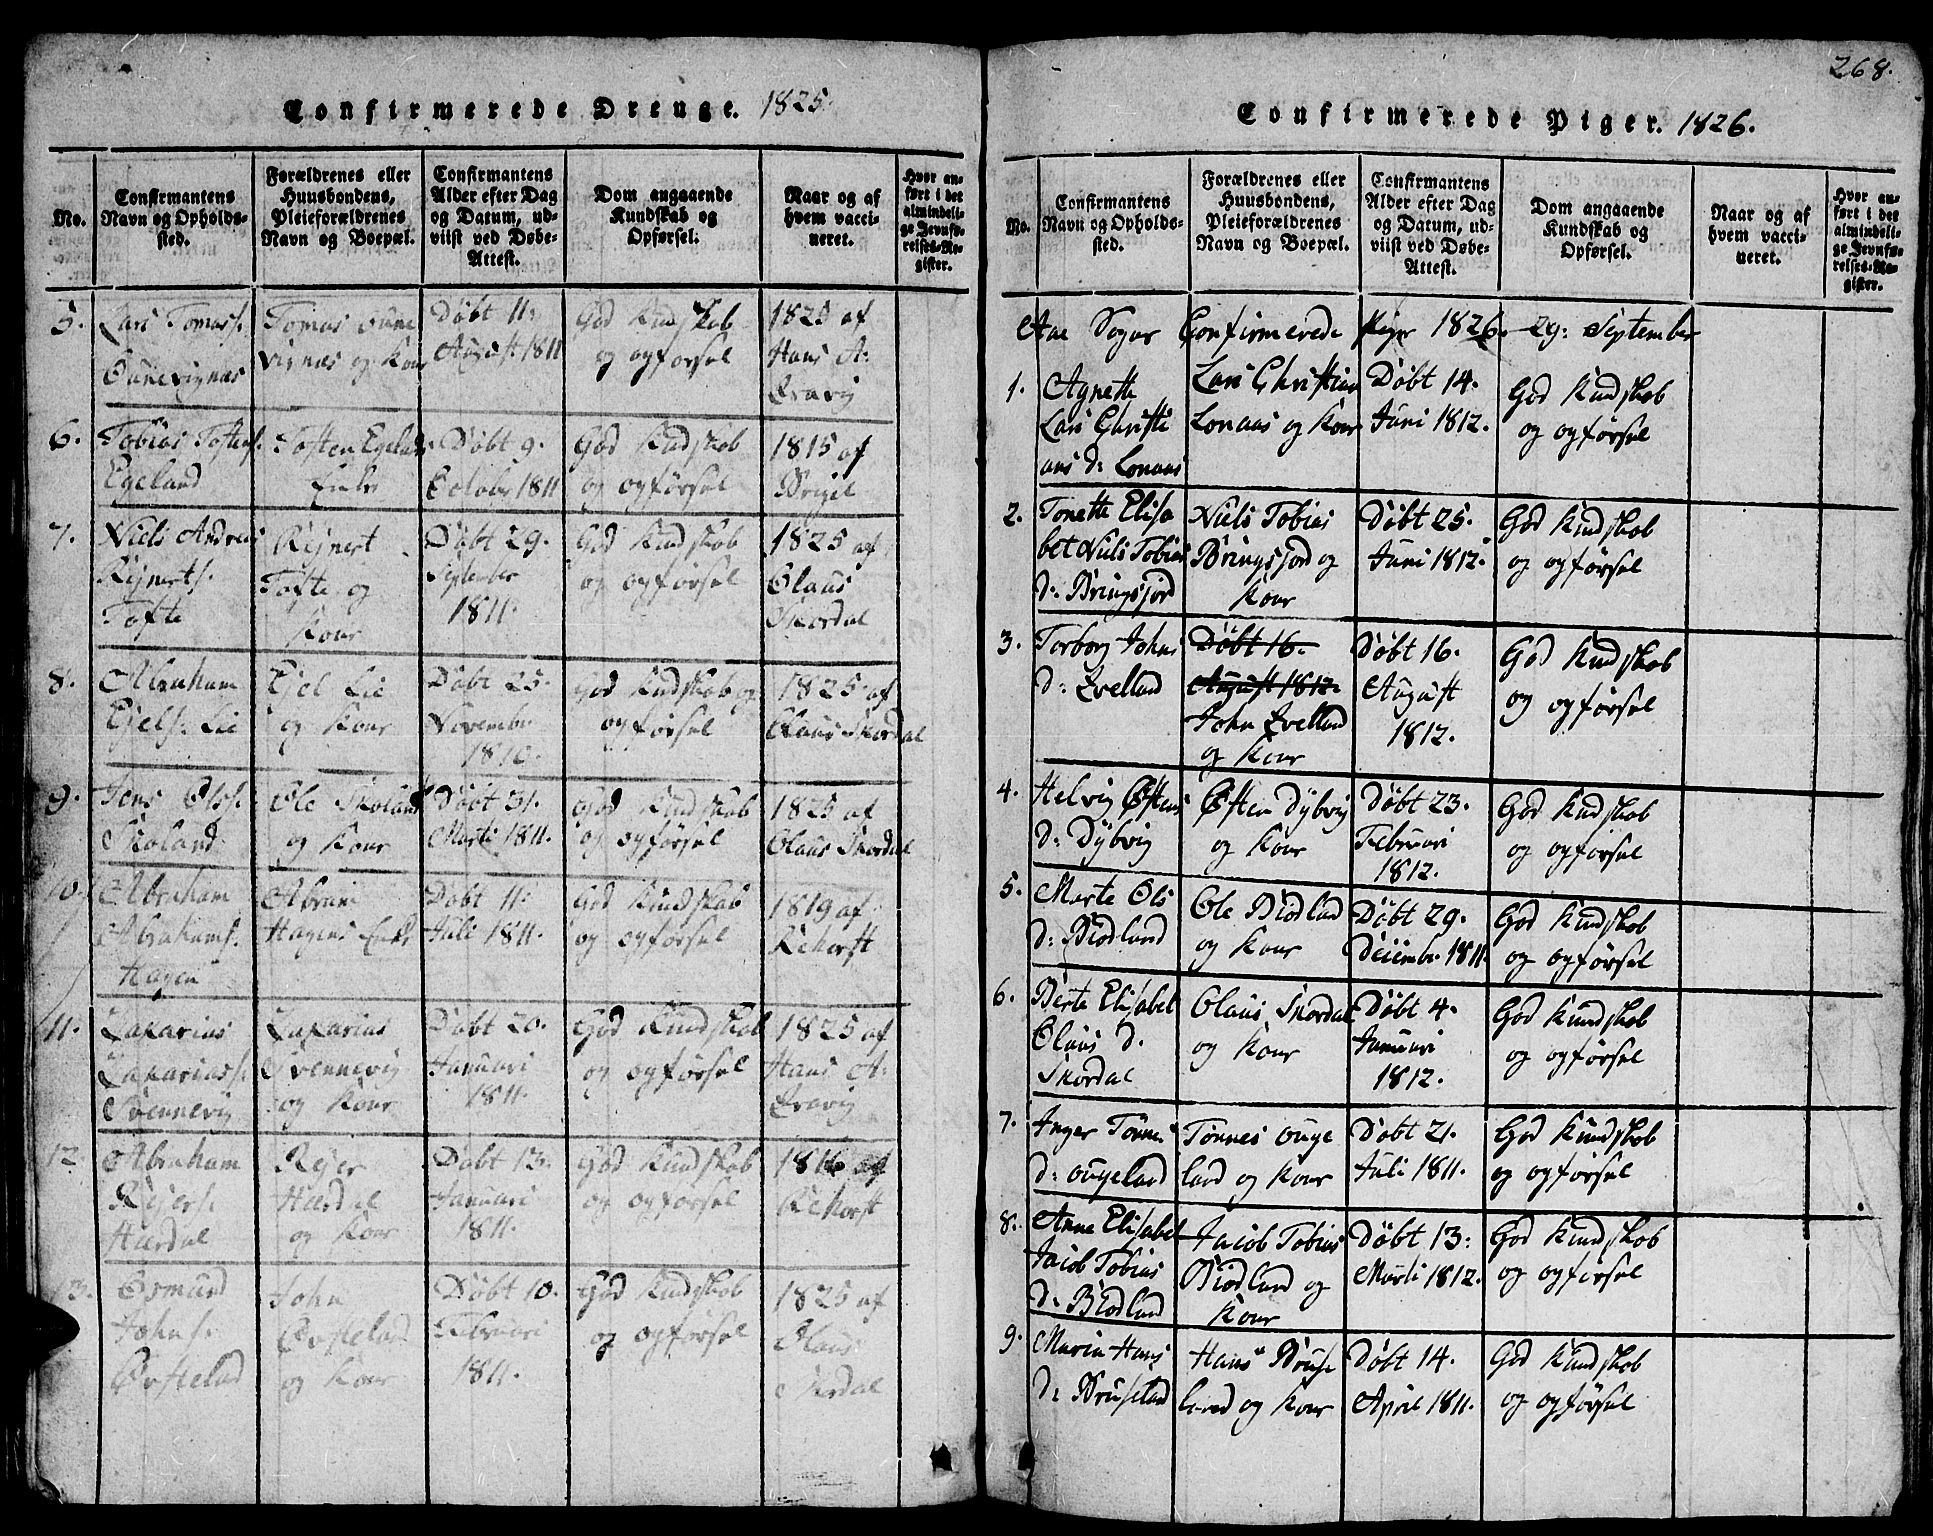 Confirmerede Drenge. 1825.
No.
Confirmantens
Navn og Opholds-
sted.
Forældrenes eller
Huusbondens,
Pleieforældrenes
Navn og Boepæl.
Confirmantens
Alder efter Dag
og Datum, ud-
viist ved Døbe-
Attest.
Dom angaaende
Kundskab og
Opførsel.
Naar og af
hvem vacci-
neret.
Hvor an-
ført i det
almindeli-
ge Jevnfø-
relses-Re-
gister.
5.
Lars Tomass.
Ounevignæs
Tomas Oune
vignæs og Kone
Døbt 11.
August 1811
God Kundskab
og opførsel
1825 af
Hans A.
6.
Tobias Tostens.
Egeland
Tosten Egeland
Enke
Døbt 9.
October 1811
God Kundskab
og opførsel
1815 af
7.
Niels Andreas
Reinerts.
Tofte
Reinert
Tofte og
Kone
Døbt 29.
September
1811.
God Kundskab
og opførsel
1825 af
Olaus
Skordal
8.
Abraham
Ejels. Lie
Ejel Lie
og Kone
Døbt 25.
November
1810.
God Kundskab og
opførsel
1825 af
Olaus Skordal
9.
Jens Ols.
Skoland
Ole Skoland
og Kone
Døbt 31.
Marti 1811.
God Kundskab
og opførsel
1825 af
Olaus Skordal
10.
Abraham
Abrahams.
Hagen
Abram
Hagens Enke
Døbt 11.
Juli 1811.
God Kundskab
og opførsel
1819 af
Rekerft
11.
Zakarias
Zakariass.
Svennevig
Zakarias
Svennevig
og Kone
Døbt 20.
Januari
1811.
God Kundskab
og opførsel
1825 af
Hans A.
12.
Abraham
Reiers.
Hærdal
Reier
Hærdal
og Kone
Døbt 13.
Januari
1811.
God Kundskab
og opførsel
1816 af
Rekerft
13.
Osmund
Johns.
John
og Kone
Døbt 10.
Februari
1811.
God Kundskab
og opførsel
1825 af
Olaus
Skordal
268.
Confirmerede Piger. 1826.
No.
Confirmantens
Navn og Opholds-
sted.
Forældrenes eller
Huusbondens,
Pleieforældrenes
Navn og Boepæl.
Confirmantens
Alder efter Dag
og Datum, ud-
viist ved Døbe-
Attest.
Dom angaaende
Kundskab og
Opførsel.
Naar og af
hvem vacci-
neret.
Hvor an-
ført i det
almindeli-
ge Jevnfø-
relses-Re-
gister.
Aae Sogns Confirmerede Piger 1826. 29. September
1.
Agnethe
Lars Christi
ans d: Lonaas
Lars Christian
Lonaas og Kone
Døbt 14.
Juni 1812.
God Kundskab
og opførsel
2.
Tonette Elisa
bet Niels Tobias
d: Bringsjord
Niels Tobias
Bringsjord og
Kone
Døbt 25.
Juni 1812.
God Kundskab
og opførsel
3.
Torborg Johns
d: Qvelland
Døbt 16.
August 1812.
John Qvelland
og Kone
Døbt 16.
August
1812.
God Kundskab
og opførsel
4.
Helvig Østens
d: Dybvig
Østen Dybvig
og Kone
Døbt 23.
Februari
1812.
God Kundskab
og opførsel
5.
Marte Ols
d: Biodland
Ole Biodland
og Kone
Døbt 29.
Deiember 1811.
God Kundskab
og opførsel
6.
Berte Elisabet
Olaus d.
Skordal
Olaus Skordal
og Kone
Døbt 4.
Januari
1812.
God Kundskab
og opførsel
7.
Inger Tønnes
d: Ougeland
Tønnes Ouge
land og Kone
Døbt 21.
Juli 1811.
God Kundskab
og opførsel
8.
Anne Elisabet
Jacob Tobias
d: Biodland
Jacob Tobias
Biodland og
Kone
Døbt 13.
Marti 1812.
God Kundskab
og opførsel
9.
Maria Hans
d: Bruseland
Hans Bruse
land og Kone
Døbt 14.
April 1811.
God Kundskab
og opførsel